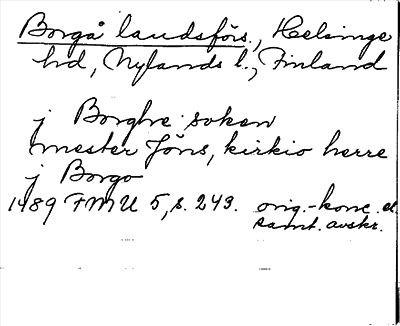 Borgå landsförs., Helsinge
hd, Nylands l., Finland
j Borghe soken
mester Jöns, kirkio herre
j Borgo
1489 FMU 5, s. 243. orig.-konc. el.
samt. avskr.